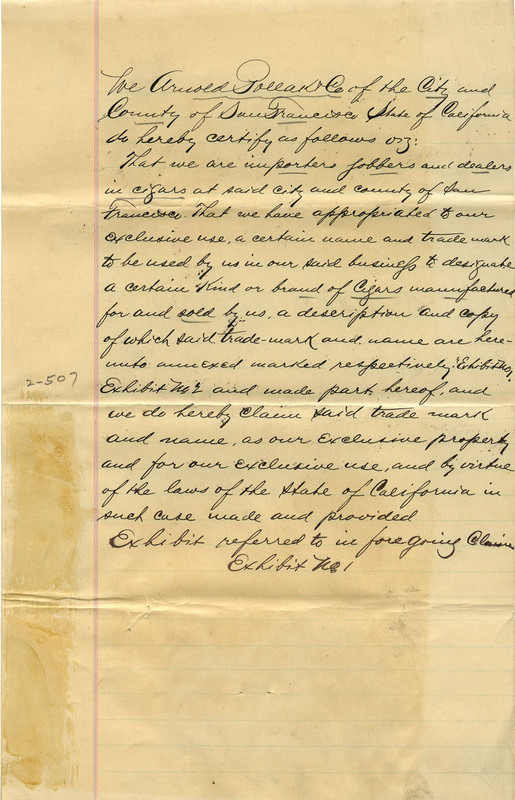 We Arnold Pollak & Co of the City and
County of San Francisco State of California
do hereby certify as follows viz:
That we are importers jobbers and dealers
in cigars at said city and county of San
Francisco. That we have appropriated to our
exclusive use, a certain name and trade mark
to be used by us in our said business to designate
a certain kind or brand of Cigars manufactured
for and sold by us, a description and copy
of which said trade-mark and name are here-
unto annexed marked respectively "Exhibit No1,
Exhibit No 2 and made part hereof, and
2-507
we do hereby claim said trade mark
and name, as our exclusive property
and for our exclusive use, and by virtue
of the laws of the State of California in
such case made and provided
Exhibit referred to in foregoing Claim
Exhibit No 1